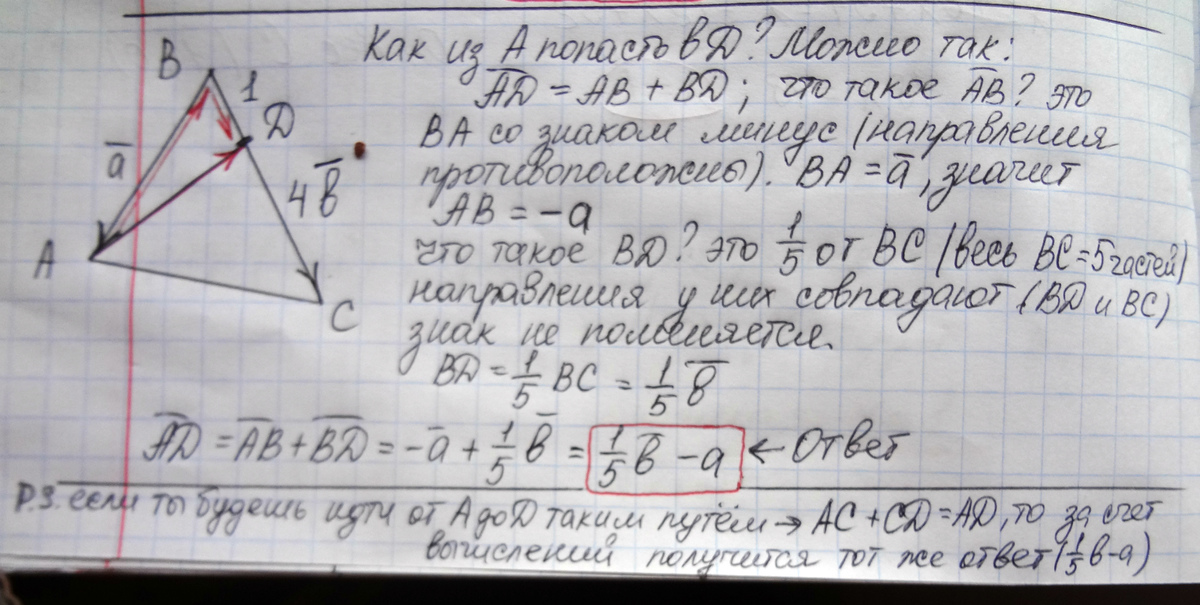 Как из А попасть в D? Можно так:
A̅D̅ = AB + BD; что такое A̅B̅? это
BA со знаком минус (направления
противоположны). BA = a̅, значит
AB = -a
что такое BD? это 1/5 от BC (весь BC=5частей)
направления у них совпадают (BD и BC)
знак не поменяется.
BD = 1/5 BC = 1/5 b̅
B
1
D
a̅
4 b̅
A
C
A̅D̅ = A̅B̅ + B̅D̅ = -a̅ + 1/5 b̅ = 1/5 b̅ - a ← Ответ
P.S. если ты будешь идти от A до D таким путём → AC + CD = AD, то за счет
вычислений получится тот же ответ (1/5 b-a)